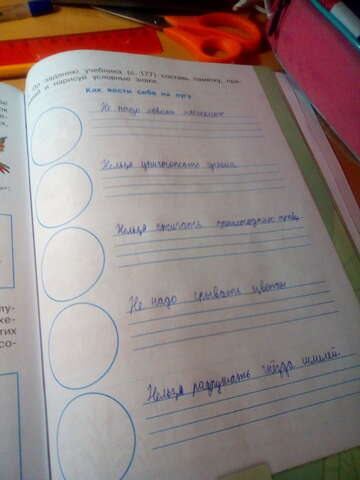 По заданию учебника (с. 177) составь памятку, при-
и нарисуй условные знаки.
Как вести себя на лугу
Не надо ловить насекомых
Нельзя уничтожать грибы
Нельзя сжигать прошлогоднюю траву
Не надо срывать цветы
Нельзя разрушать гнёзда шмелей.
лу-
же-
тих
со-